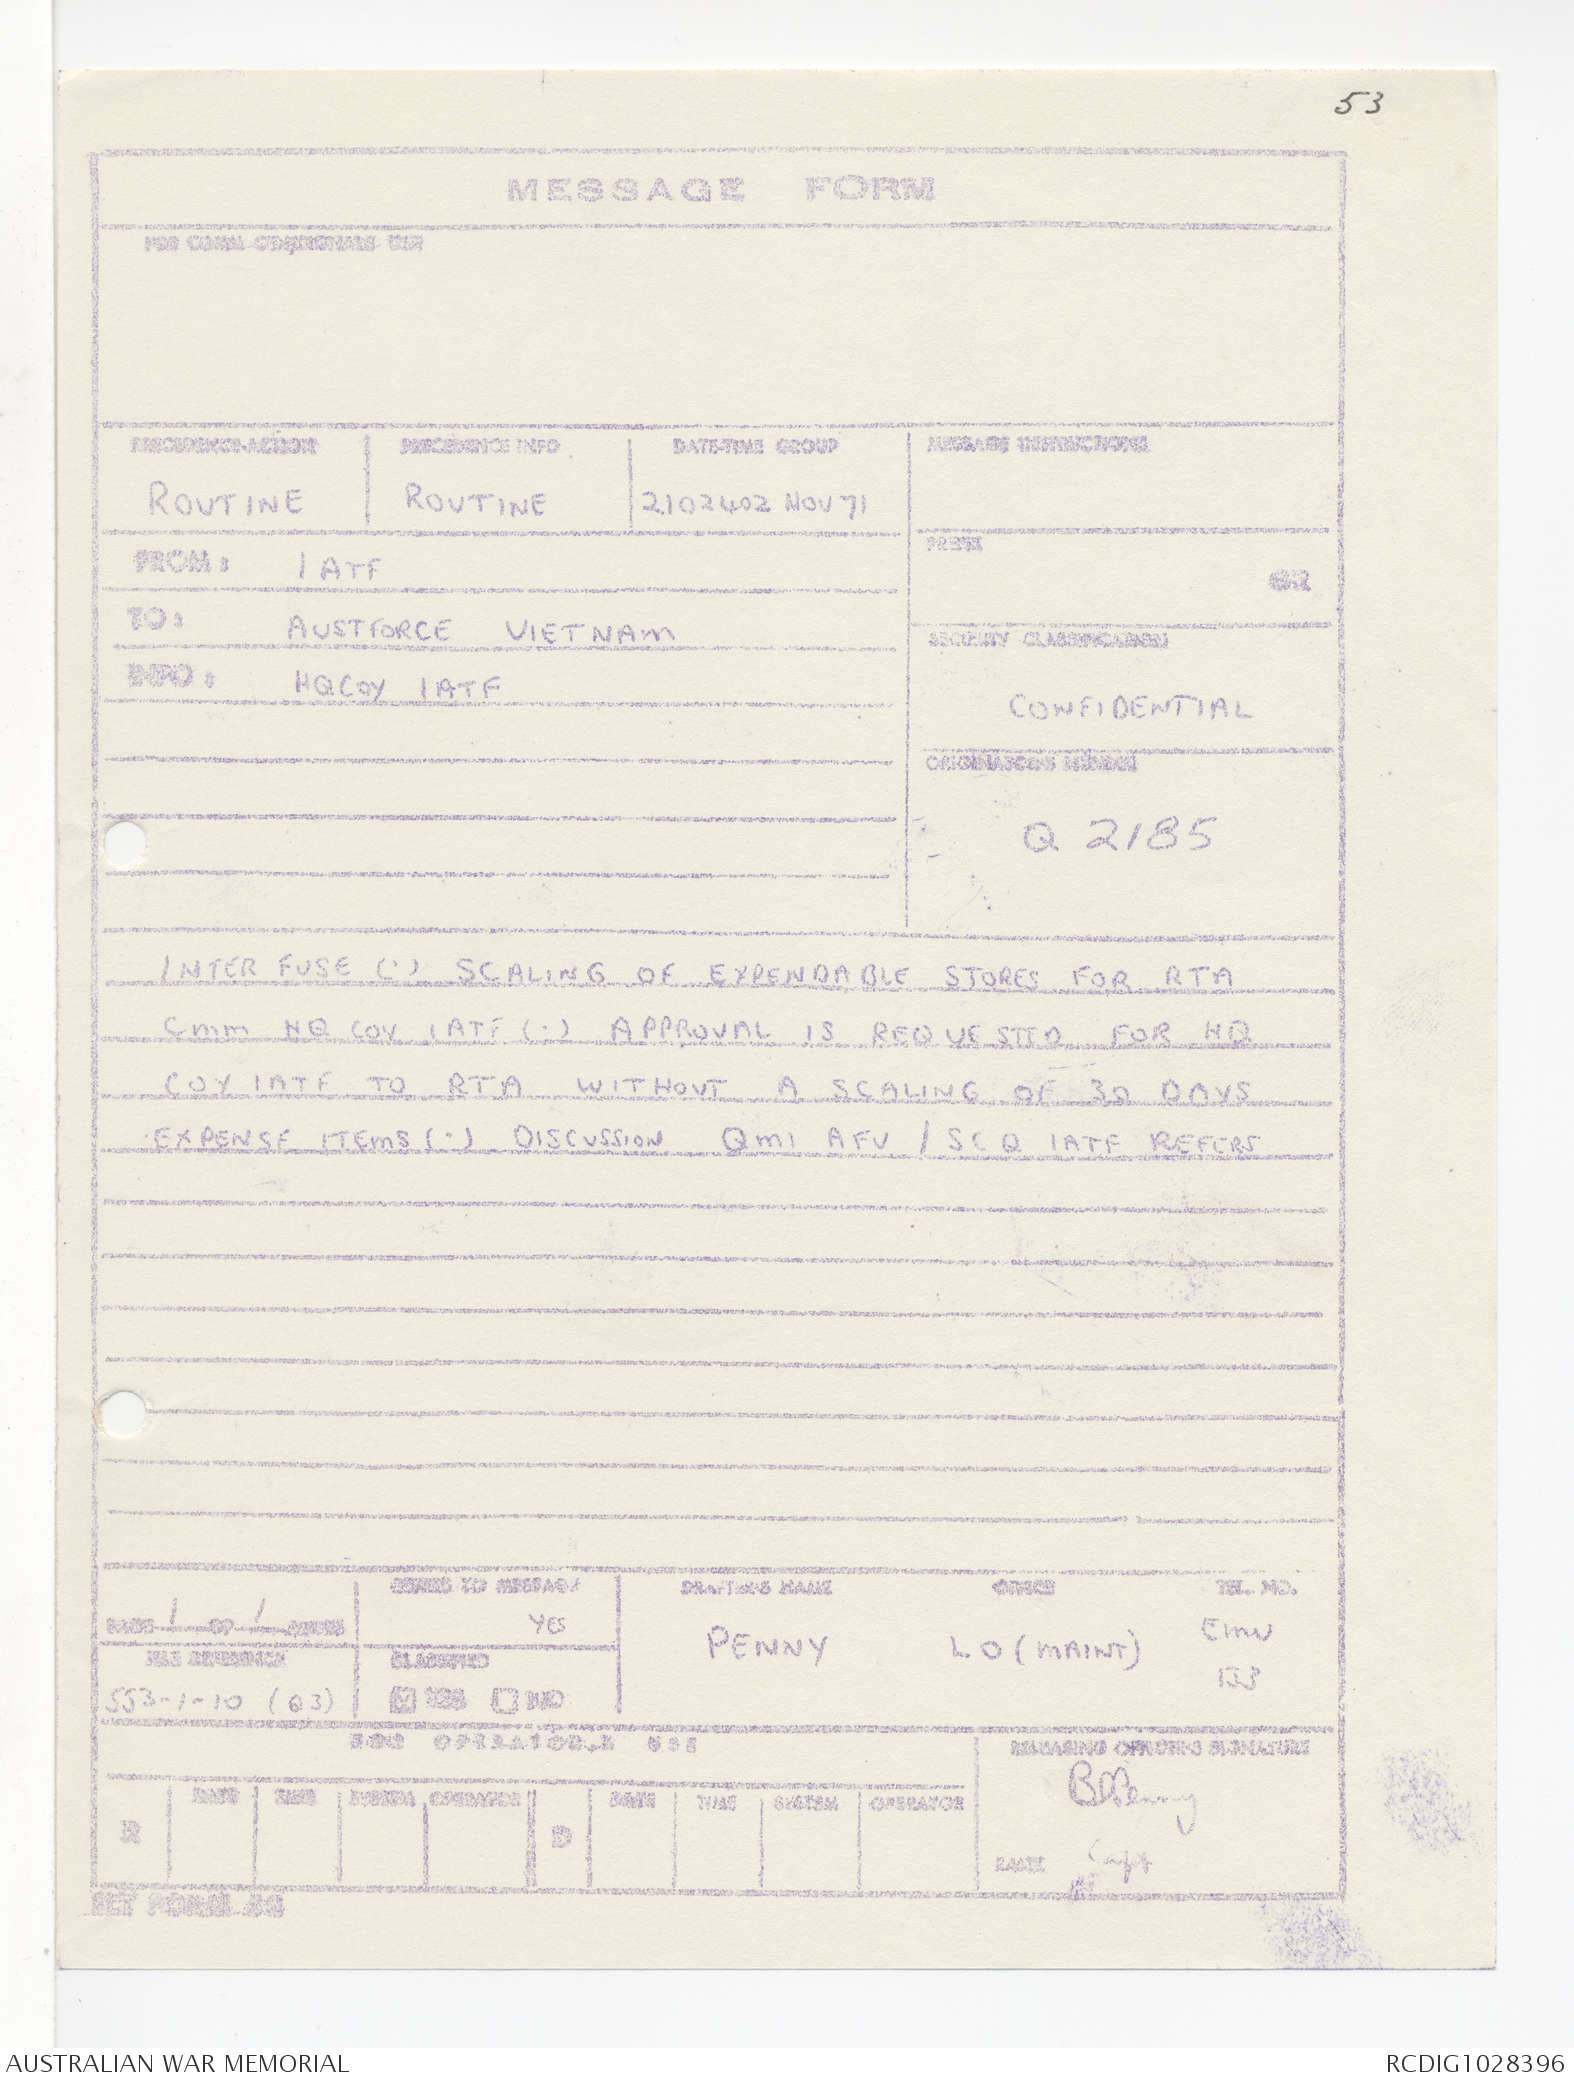 53
MESSAGE FORM
FOR COMM CEN/SIGNALS USE
PRECEDENCE-ACTION
PRECEDENCE INFO
DATE-TIME GROUP
MESSAGE INSTRUCTIONS
ROUTINE
ROUTINE
210240Z NOV 71
FROM: 1 ATF
PREFIX
GR
TO: AUSTFORCE VIETNAM
SECURITY CLASSIFICATION
INFO: HQ COY 1 ATF
CONFIDENTIAL
ORIGINATOR'S NUMBER
Q 2185
INTERFUSE (.) SCALING OF EXPENDABLE STORES FOR RTA
CMM HQ COY 1ATF (.) APPROVAL IS REQUESTED FOR HQ
COY 1ATF TO RTA WITHOUT A SCALING OF 30 DAYS
EXPENSE ITEMS (.) DISCUSSION QM1 AFV / SC Q 1ATF REFERS
PAGE 1 OF 1 PAGES
REFERS TO MESSAGE
YES
DRAFTER'S NAME
OFFICE
TEL. NO.
PENNY
LO (MAINT)
EMU
133
FILE REFERENCE
CLASSIFIED
553-1-10 (Q3)
YES NO
FOR OPERATOR'S USE
RELEASING OFFICER'S SIGNATURE
R DATE TIME SYSTEM OPERATOR D DATE TIME SYSTEM OPERATOR
Penny
RANK Capt
AUSTRALIAN WAR MEMORIAL
RCDIG1028396